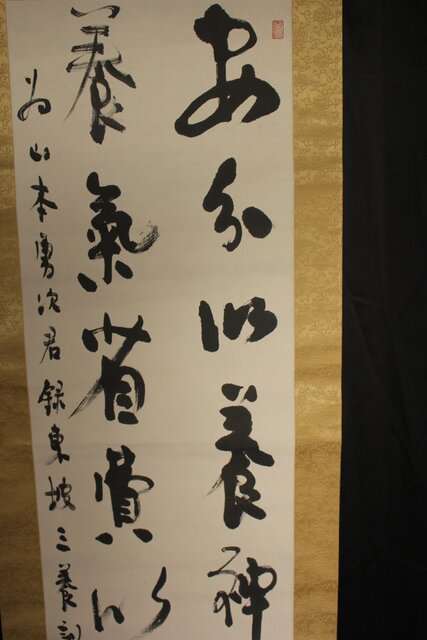 安分以養福
養氣省費以
為山本勇次君録東坡三養訓